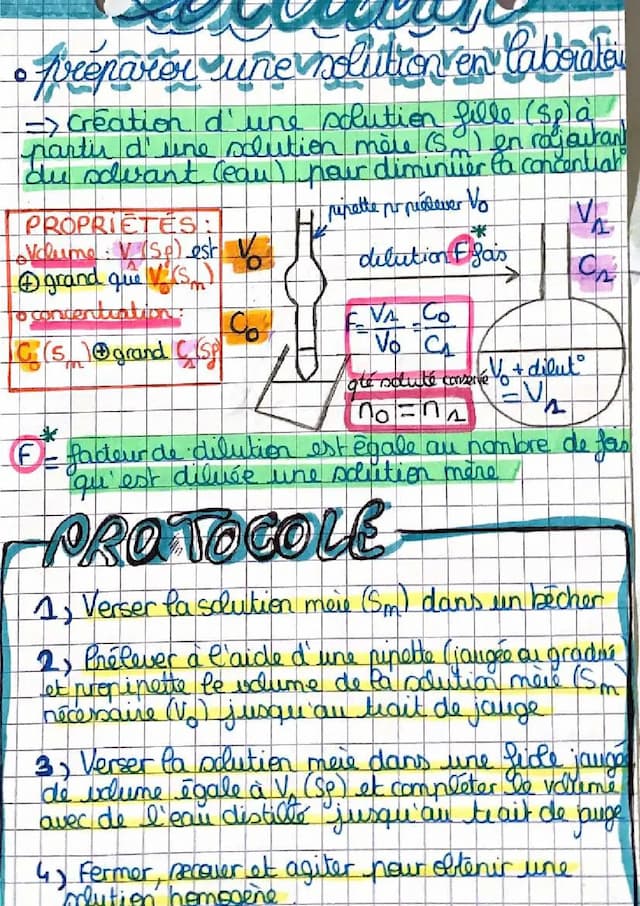 • préparer une solution en laboratoi
=> Création d'une solution fille (Sf) à
partir d'une solution mère (Sm) en rajoutant
du solvant (eau) pour diminuer la concentrat°
PROPRIÉTÉS :
• Volume : V1 (Sf) est
⊕ grand que V0 (Sm)
• concentration :
C0 (Sm) ⊕ grand C1 (Sf)
V0
C0
pipette pr prélever V0
dilution F* fois
F = V1/V0 = C0/C1
qté soluté conservé
n0 = n1
V1
C1
V0 + dilut°
= V1
F* = facteur de dilution est égale au nombre de fois
qu'est diluée une solution mère
PROTOCOLE
1) Verser la solution mère (Sm) dans un bécher
2) Prélever à l'aide d'une pipette (jaugée ou gradué
et propipette le volume de la solution mère (Sm
nécessaire (V0) jusqu'au trait de jauge
3) Verser la solution mère dans une fiole jaugée
de volume égale à V1 (Sf) et compléter le volume
avec de l'eau distillé jusqu'au trait de jauge
4) Fermer, secouer et agiter pour obtenir une
solution homogène.